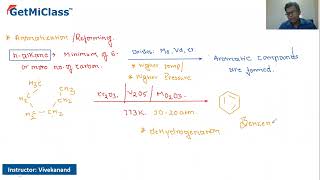 GetMiClass™
* Aromatization /Reforming.
n-alkane → Minimum of 6- or more no. of carbon.
Oxides: Mo, Vd, Cr.
* higher temp/
* higher Pressure
→ Aromatic compounds are formed.
CH₂
Cr₂O₃ / V₂O₅ / Mo₂O₃
773K 10-20atm
* dehydrogenation
Benzene
Instructor: Vivekanand